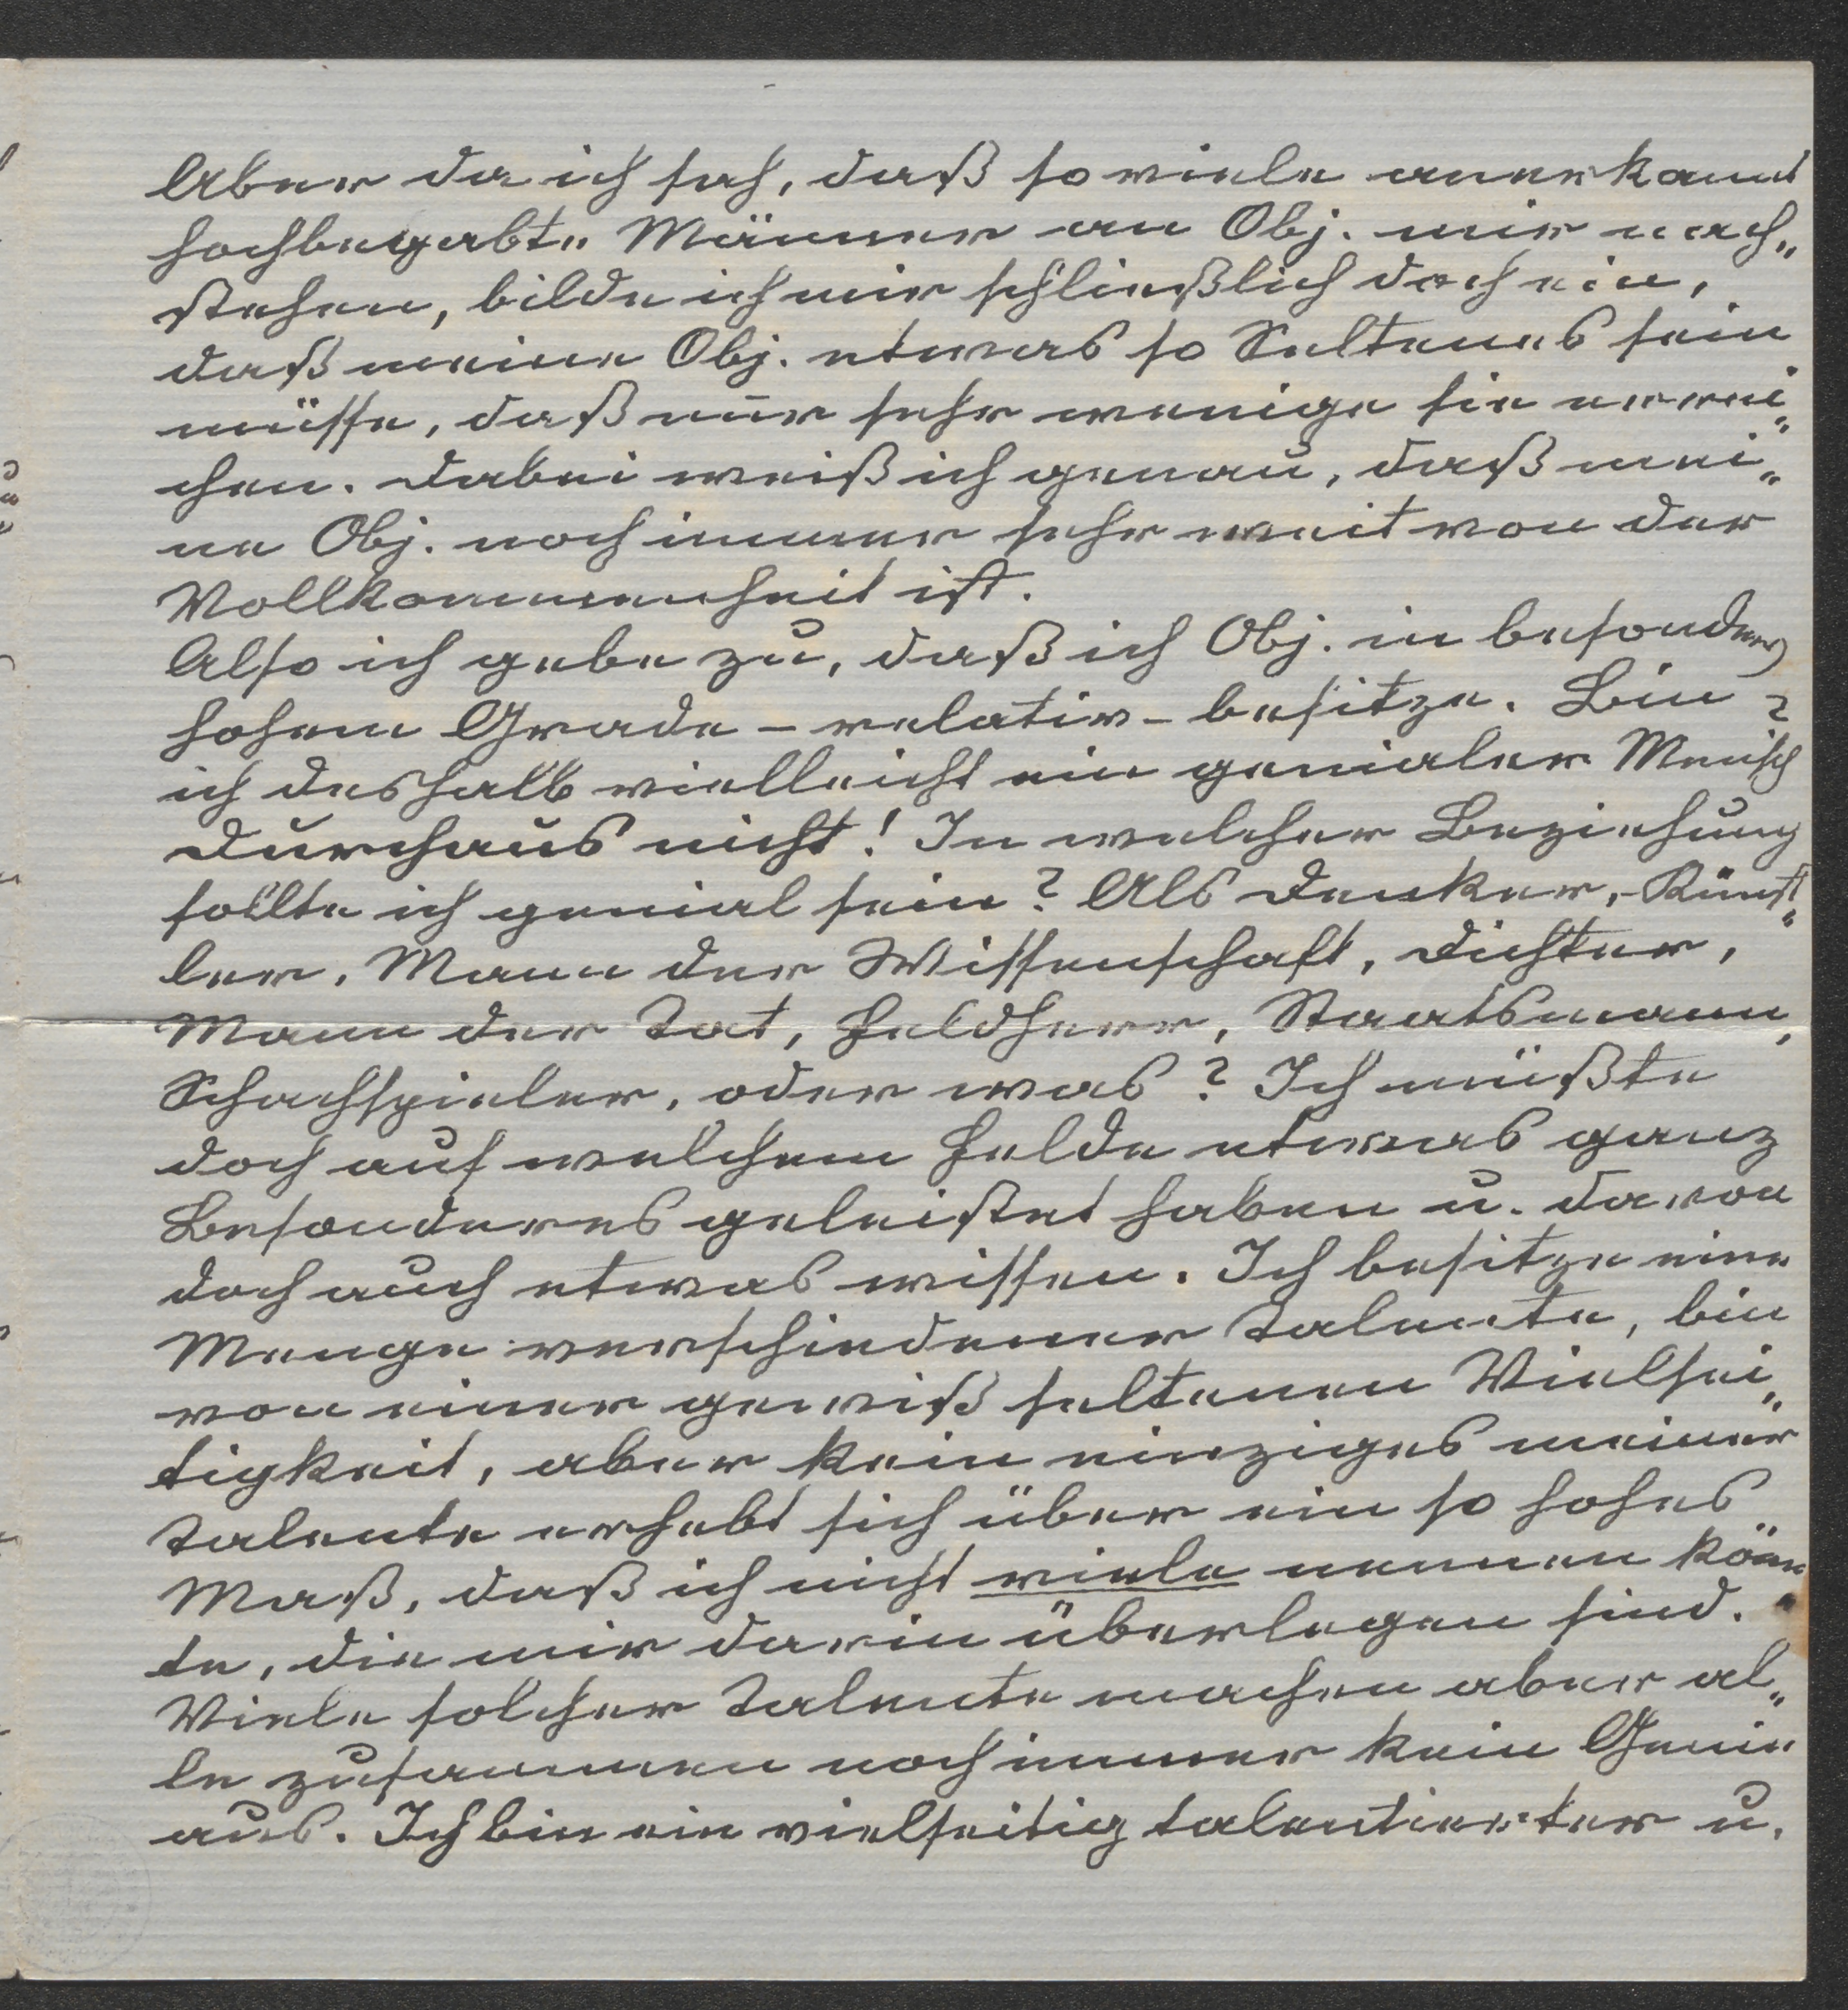 Aber da ich sah, daß so viele anerkannt
hochbegabte Männer an Obj. mir nach„
stehen, bilde ich mir schließlich doch ein,
daß meine Obj. etwas so Seltenes sein
müsse, daß nur sehr wenige sie errei„
chen. Dabei weiß ich genau, daß mei„
ne Obj. noch immer sehr weit von der
Vollkommenheit ist.
Also ich gebe zu, daß ich Obj. in besonders
hohem Grade – relativ – besitze. Bin
ich deshalb vielleicht ein genialer Mensch?
Durchaus nicht! In welcher Beziehung
sollte ich genial sein? Als Denker, Künst„
ler, Mann der Wissenschaft, Dichter,
Mann der Tat, Feldherr, Staatsmann,
Schachspieler, oder was? Ich müßte
doch auf welchem Felde etwas ganz
Besonderes geleistet haben u. davon
doch auch etwas wissen. Ich besitze eine
Menge verschiedener Talente, bin
von einer gewiß seltenen Vielsei„
tigkeit, aber kein einziges meiner
Talente erhebt sich über ein so hohes
Maß, daß ich nicht viele nennen könn
te, die mir darin überlegen sind.
Viele solcher Talente machen aber al„
le zusammen noch immer kein Genie
aus. Ich bin ein vielseitig talentierter u.